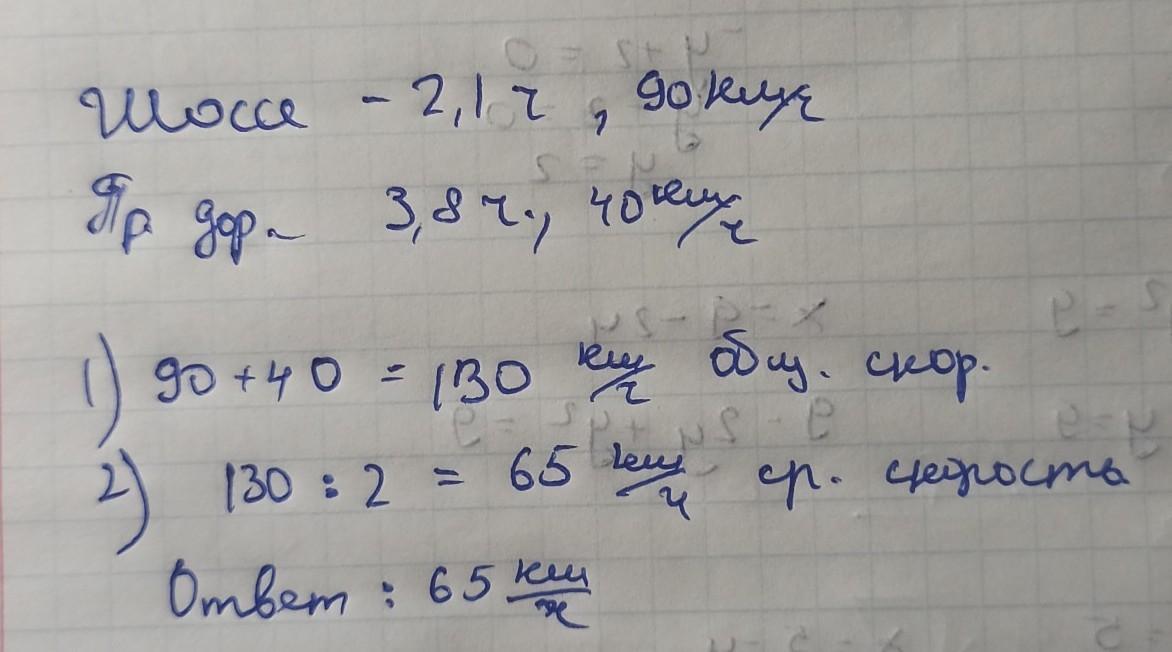 Шоссе - 2,1 ч , 90 км/ч
Пр. дор. - 3,8 ч., 40 км/ч
1) 90 + 40 = 130 км/ч общ. скор.
2) 130 : 2 = 65 км/ч ср. скорость
Ответ : 65 км/ч